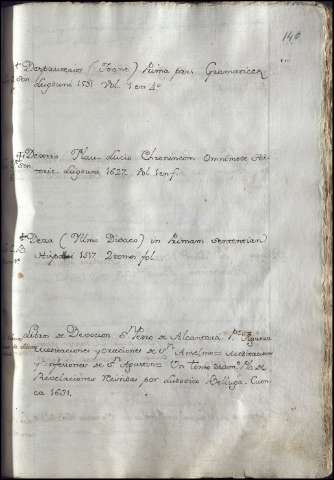 140
Despauterio (Joane) Prima pars Gramaticæ
Lugduni 1531 Vol. 1 en 4º
Dextro Flau. Lucio Chronicon Omnimode His-
torie. Lugduni 1627. Vol 1 en f.
Deza (Illmo Didaco) in Primam Sententiar
Hispali 1517. 2 tomos fol
Libro de Devocion S. Pedro de Alcantara
Meditaciones y oraciones de Sn Anselmo. Meditaciones
y confesiones de S. Agustin. Un tomo
Revelaciones Reunidas por Ludovico Belluga. Cuen
ca 1631.